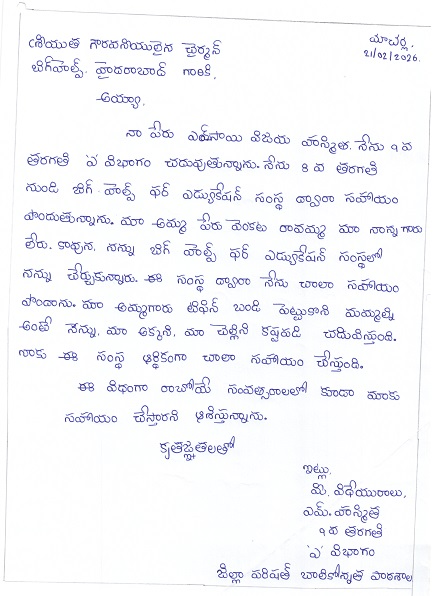 మాచర్ల,
21/02/2026.
శ్రీయుత గౌరవనీయులైన చైర్మన్
బిగ్‌హెల్ప్, హైదరాబాద్ గారికి,
అయ్యా,
నా పేరు ఎమ్.సాయి విజయ హస్మిత. నేను 9 వ
తరగతి 'ఎ' విభాగం చదువుతున్నాను. నేను 8 వ తరగతి
నుండి బిగ్ హెల్ప్ ఫర్ ఎడ్యుకేషన్ సంస్థ ద్వారా సహాయం
పొందుతున్నాను. మా అమ్మ పేరు వెంకట రావమ్మ మా నాన్న గారు
లేరు. కావున, నన్ను బిగ్ హెల్ప్ ఫర్ ఎడ్యుకేషన్ సంస్థలో
నన్ను చేర్చుకున్నారు. ఈ సంస్థ ద్వారా నేను చాలా సహాయం
పొందాను. మా అమ్మగారు టిఫిన్ బండి పెట్టుకొని మమ్మల్ని
అంటే నన్ను, మా అక్కని, మా చెల్లిని కష్టపడి చదివిస్తుంది.
నాకు ఈ సంస్థ ఆర్థికంగా చాలా సహాయం చేస్తుంది.
ఈ విధంగా రాబోయే సంవత్సరాలలో కూడా మాకు
సహాయం చేస్తారని ఆశిస్తున్నాను.
కృతజ్ఞతలతో
ఇట్లు,
మీ విధేయురాలు,
ఎమ్. హస్మిత
9 వ తరగతి
'ఎ' విభాగం
జిల్లా పరిషత్ బాలికోన్నత పాఠశాల